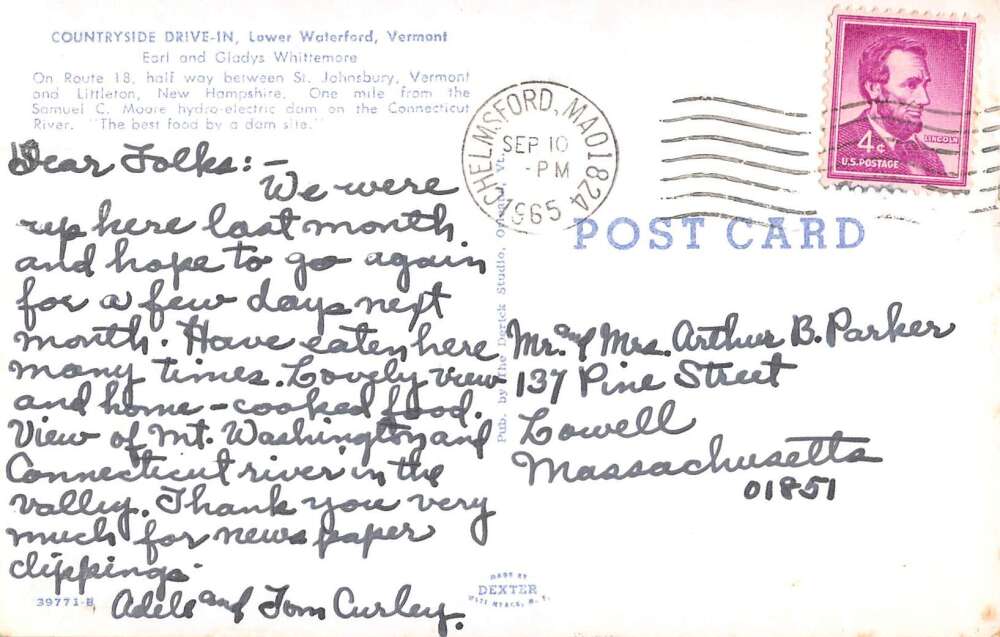 COUNTRYSIDE DRIVE-IN, Lower Waterford, Vermont
Earl and Gladys Whittemore
On Route 18, half way between St. Johnsbury, Vermont
and Littleton, New Hampshire. One mile from the
Samuel C. Moore hydro-electric dam on the Connecticut
River. "The best food by a dam site."
Dear Folks:-
We were
up here last month
and hope to go again
for a few days next
month. Have eaten here
many times. Lovely view
and home-cooked food.
View of Mt. Washington and
Connecticut river in the
valley. Thank you very
much for newspaper
clippings.
Adele and Tom Curley.
39771-B
Pub. by The Derick Studio, Vt.
MADE BY
DEXTER
CHELMSFORD, MA 01824
SEP 10
-PM
1965
LINCOLN
4¢
U.S. POSTAGE
POST CARD
Mr. and Mrs. Arthur B. Parker
137 Pine Street
Lowell
Massachusetts
01851